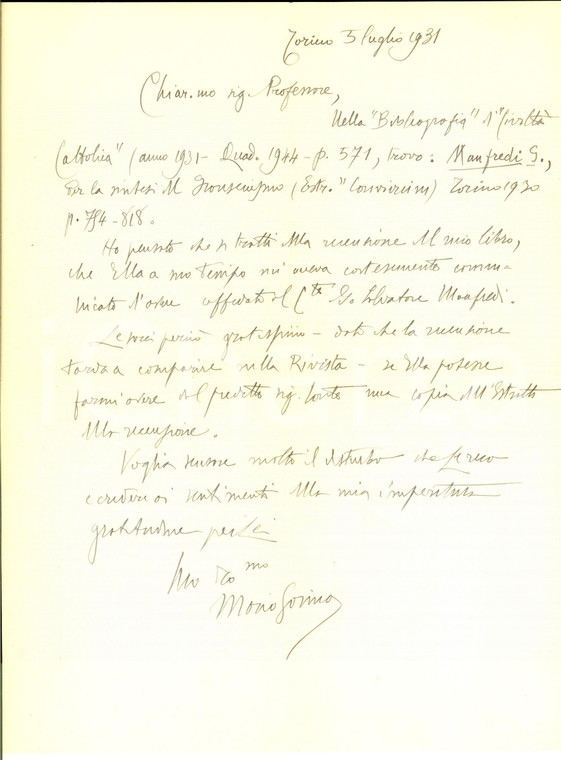 Torino 5 luglio 1931
Chiar.mo sig. Professore,
Nella "Bibliografia" d "Civiltà
Cattolica" (anno 1931 - Quad. 1944 - p. 571, trovo: Manfredi S.,
Per la sintesi del (Estr. "Convivium) Torino 1930
p. 794-818.
Ho pensato che si tratti della recensione del mio libro,
che Ella a suo tempo mi aveva cortesemente comu-
nicato d'avere affidato al C.te Salvatore Manfredi.
Le sarei perciò gratissimo - dato che la recensione
tarda a comparire nella Rivista - se Ella potesse
farmi avere dal predetto sig. Conte una copia dell'Estratto
della recensione.
Voglia scusare molto il disturbo che Le reco
e credere ai sentimenti della mia imperitura
gratitudine per Lei
Suo
Mario